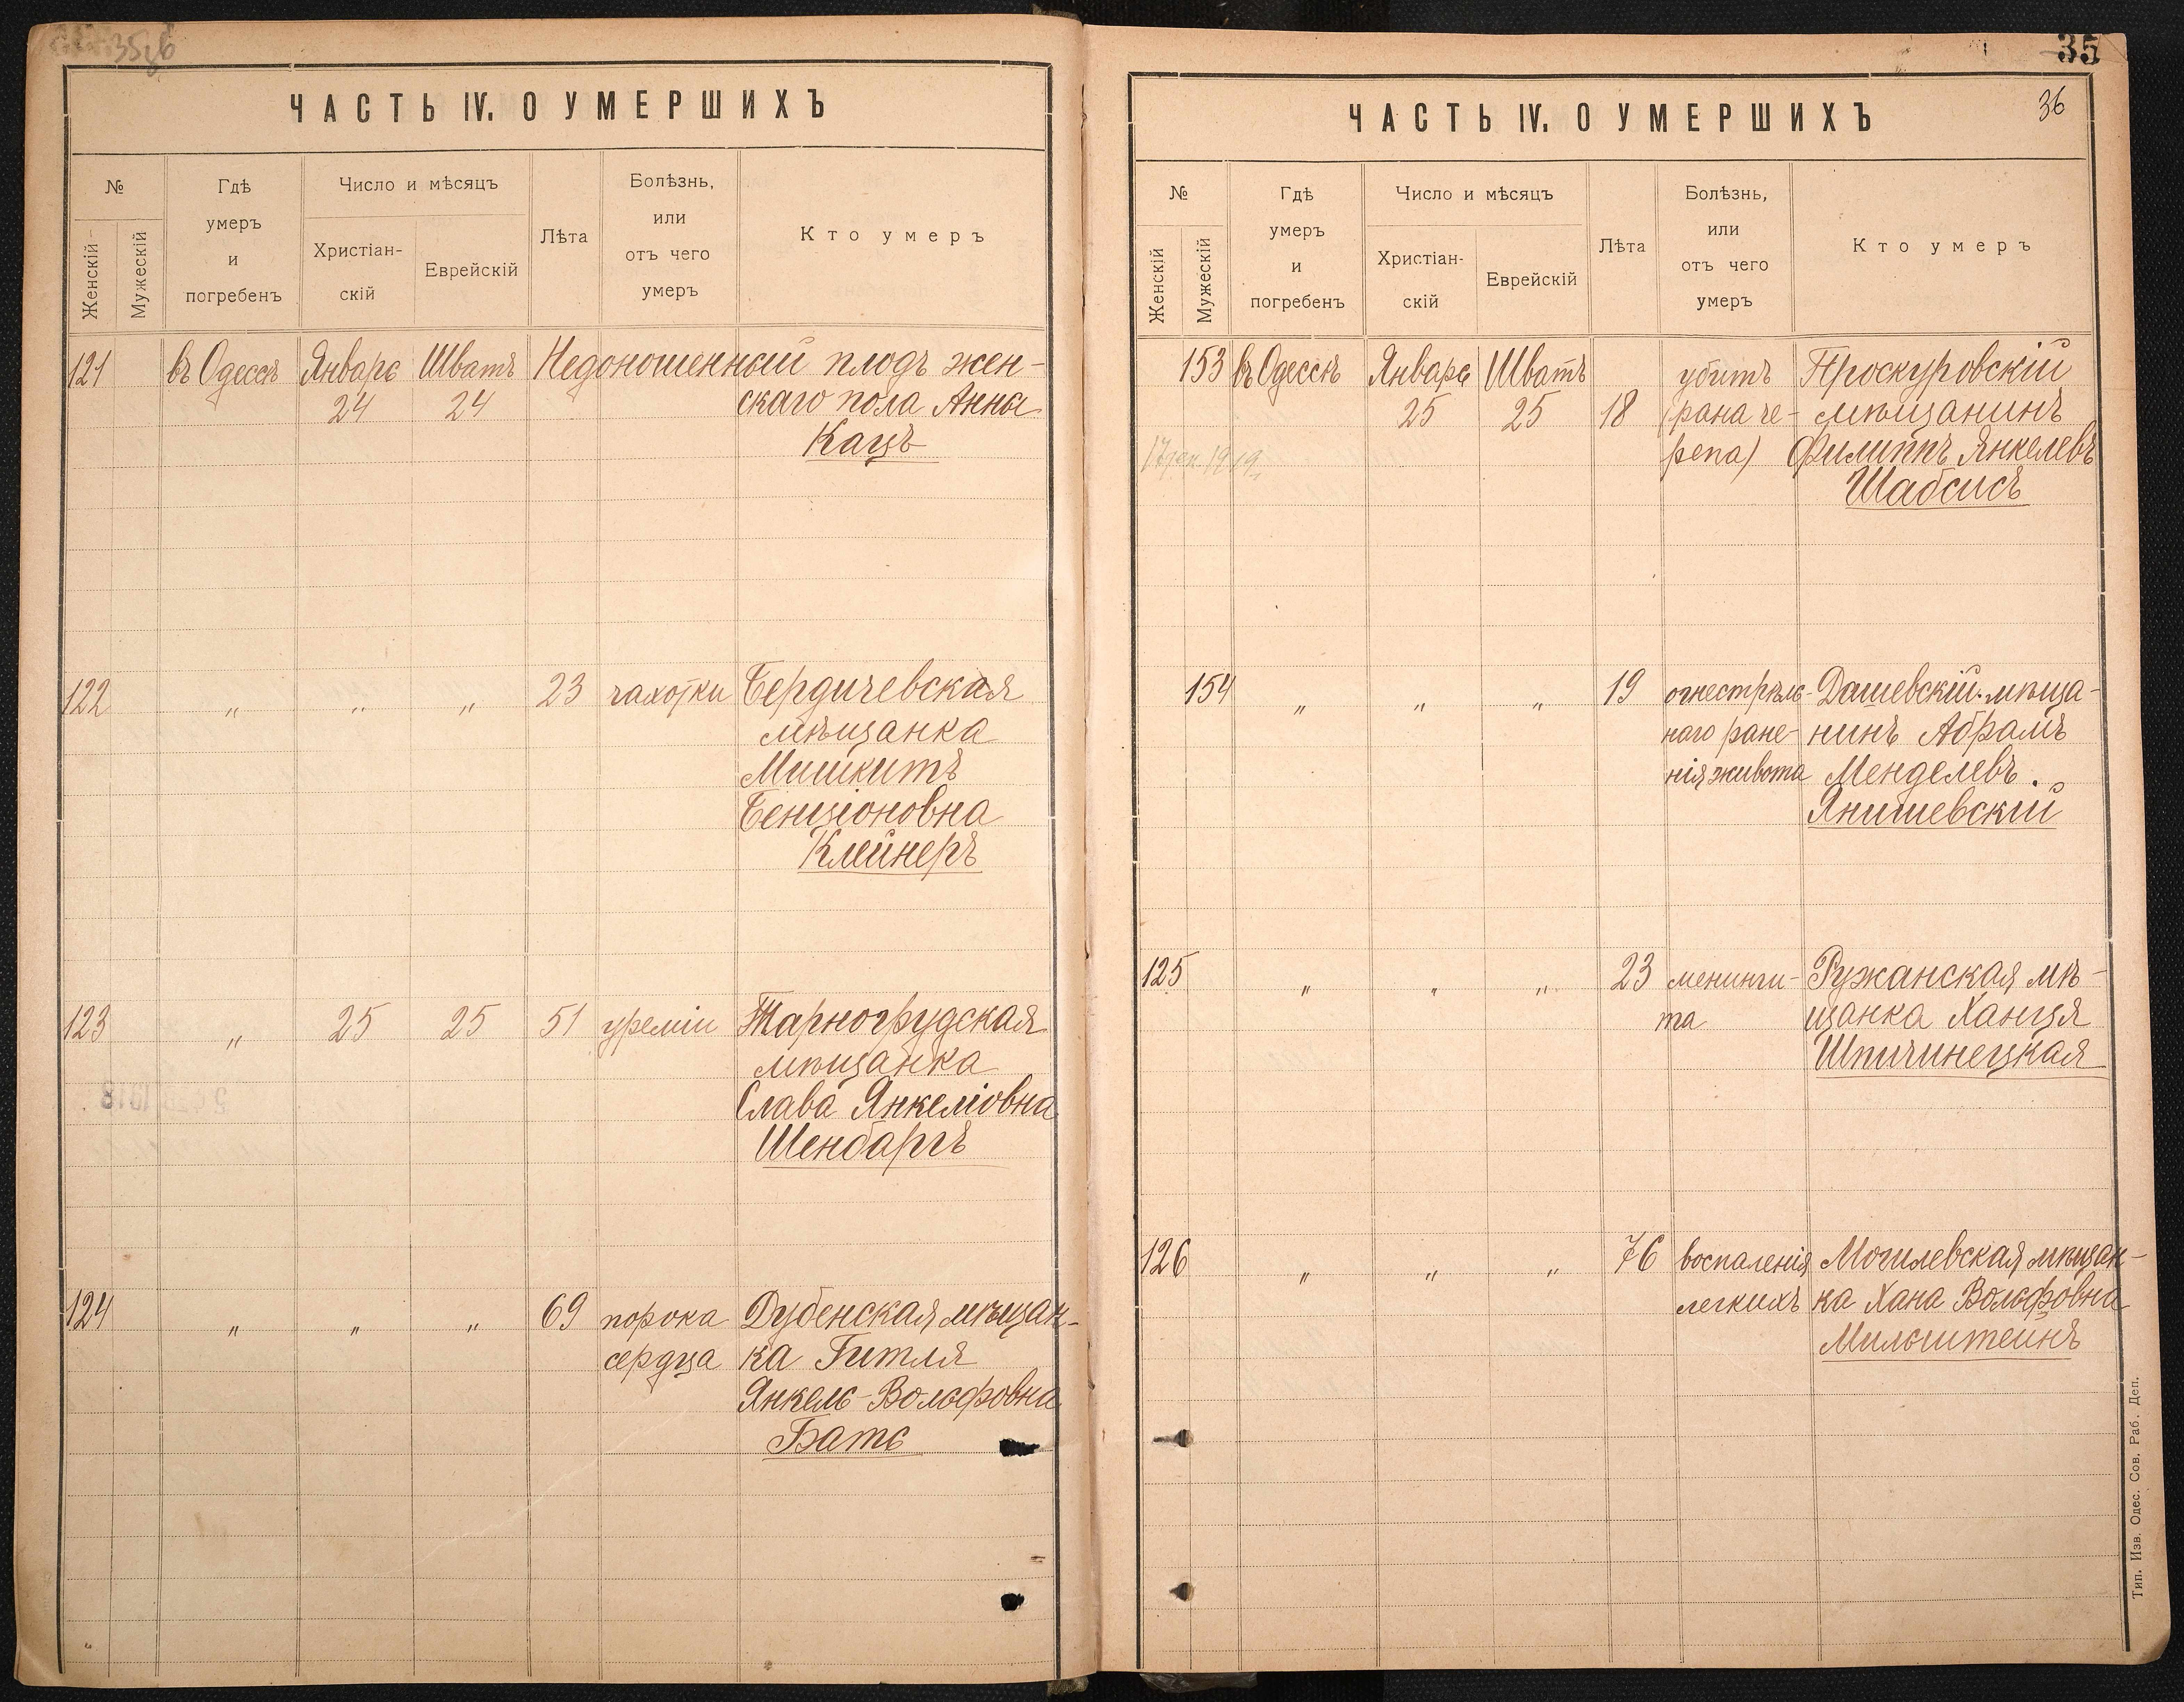 ЧАСТЬ IV. О УМЕРШИХЪ
№
Женскій
Мужескій
Гдѣ
умеръ
и
погребенъ
Число и мѣсяцъ
Христіан-
скій
Еврейскій
Лѣта
Болѣзнь,
или
отъ чего
умеръ
Кто умеръ
121 въ Одессѣ Январь Шватъ Недоношенный плодъ жен-
24 24 скаго пола Анна
Кацъ
122 „ „ „ 23 чахотки Бердичевская
мѣщанка
Мишкитъ
Бенціоновна
Клейнеръ
123 „ 25 25 51 уреміи Тарногрудская
мѣщанка
Слава Янкеліовна
Шенбаргъ
124 „ „ „ 69 порока Дубенская мѣщан-
сердца ка Гитля
Янкель-Вольфовна
Бать
35
36
ЧАСТЬ IV. О УМЕРШИХЪ
№
Женскій
Мужескій
Гдѣ
умеръ
и
погребенъ
Число и мѣсяцъ
Христіан-
скій
Еврейскій
Лѣта
Болѣзнь,
или
отъ чего
умеръ
Кто умеръ
153 въ Одессѣ Январь Шватъ убитъ Проскуровскій
25 25 18 (рана че- мѣщанинъ
репа) Филиппъ Янкелевъ
Шабсисъ
154 „ „ „ 19 огнестрѣль- Дашевскій мѣща-
наго ране- нинъ Абрамъ
нія живота Менделевъ
Янишевскій
125 „ „ „ 23 менинги- Ружанская мѣ-
та щанка Ханця
Шпичинецкая
126 „ „ „ 76 воспаленія Могилевская мѣщан-
легкихъ ка Хана Вольфовна
Мильштейнъ
Тип. Изв. Одес. Сов. Раб. Деп.